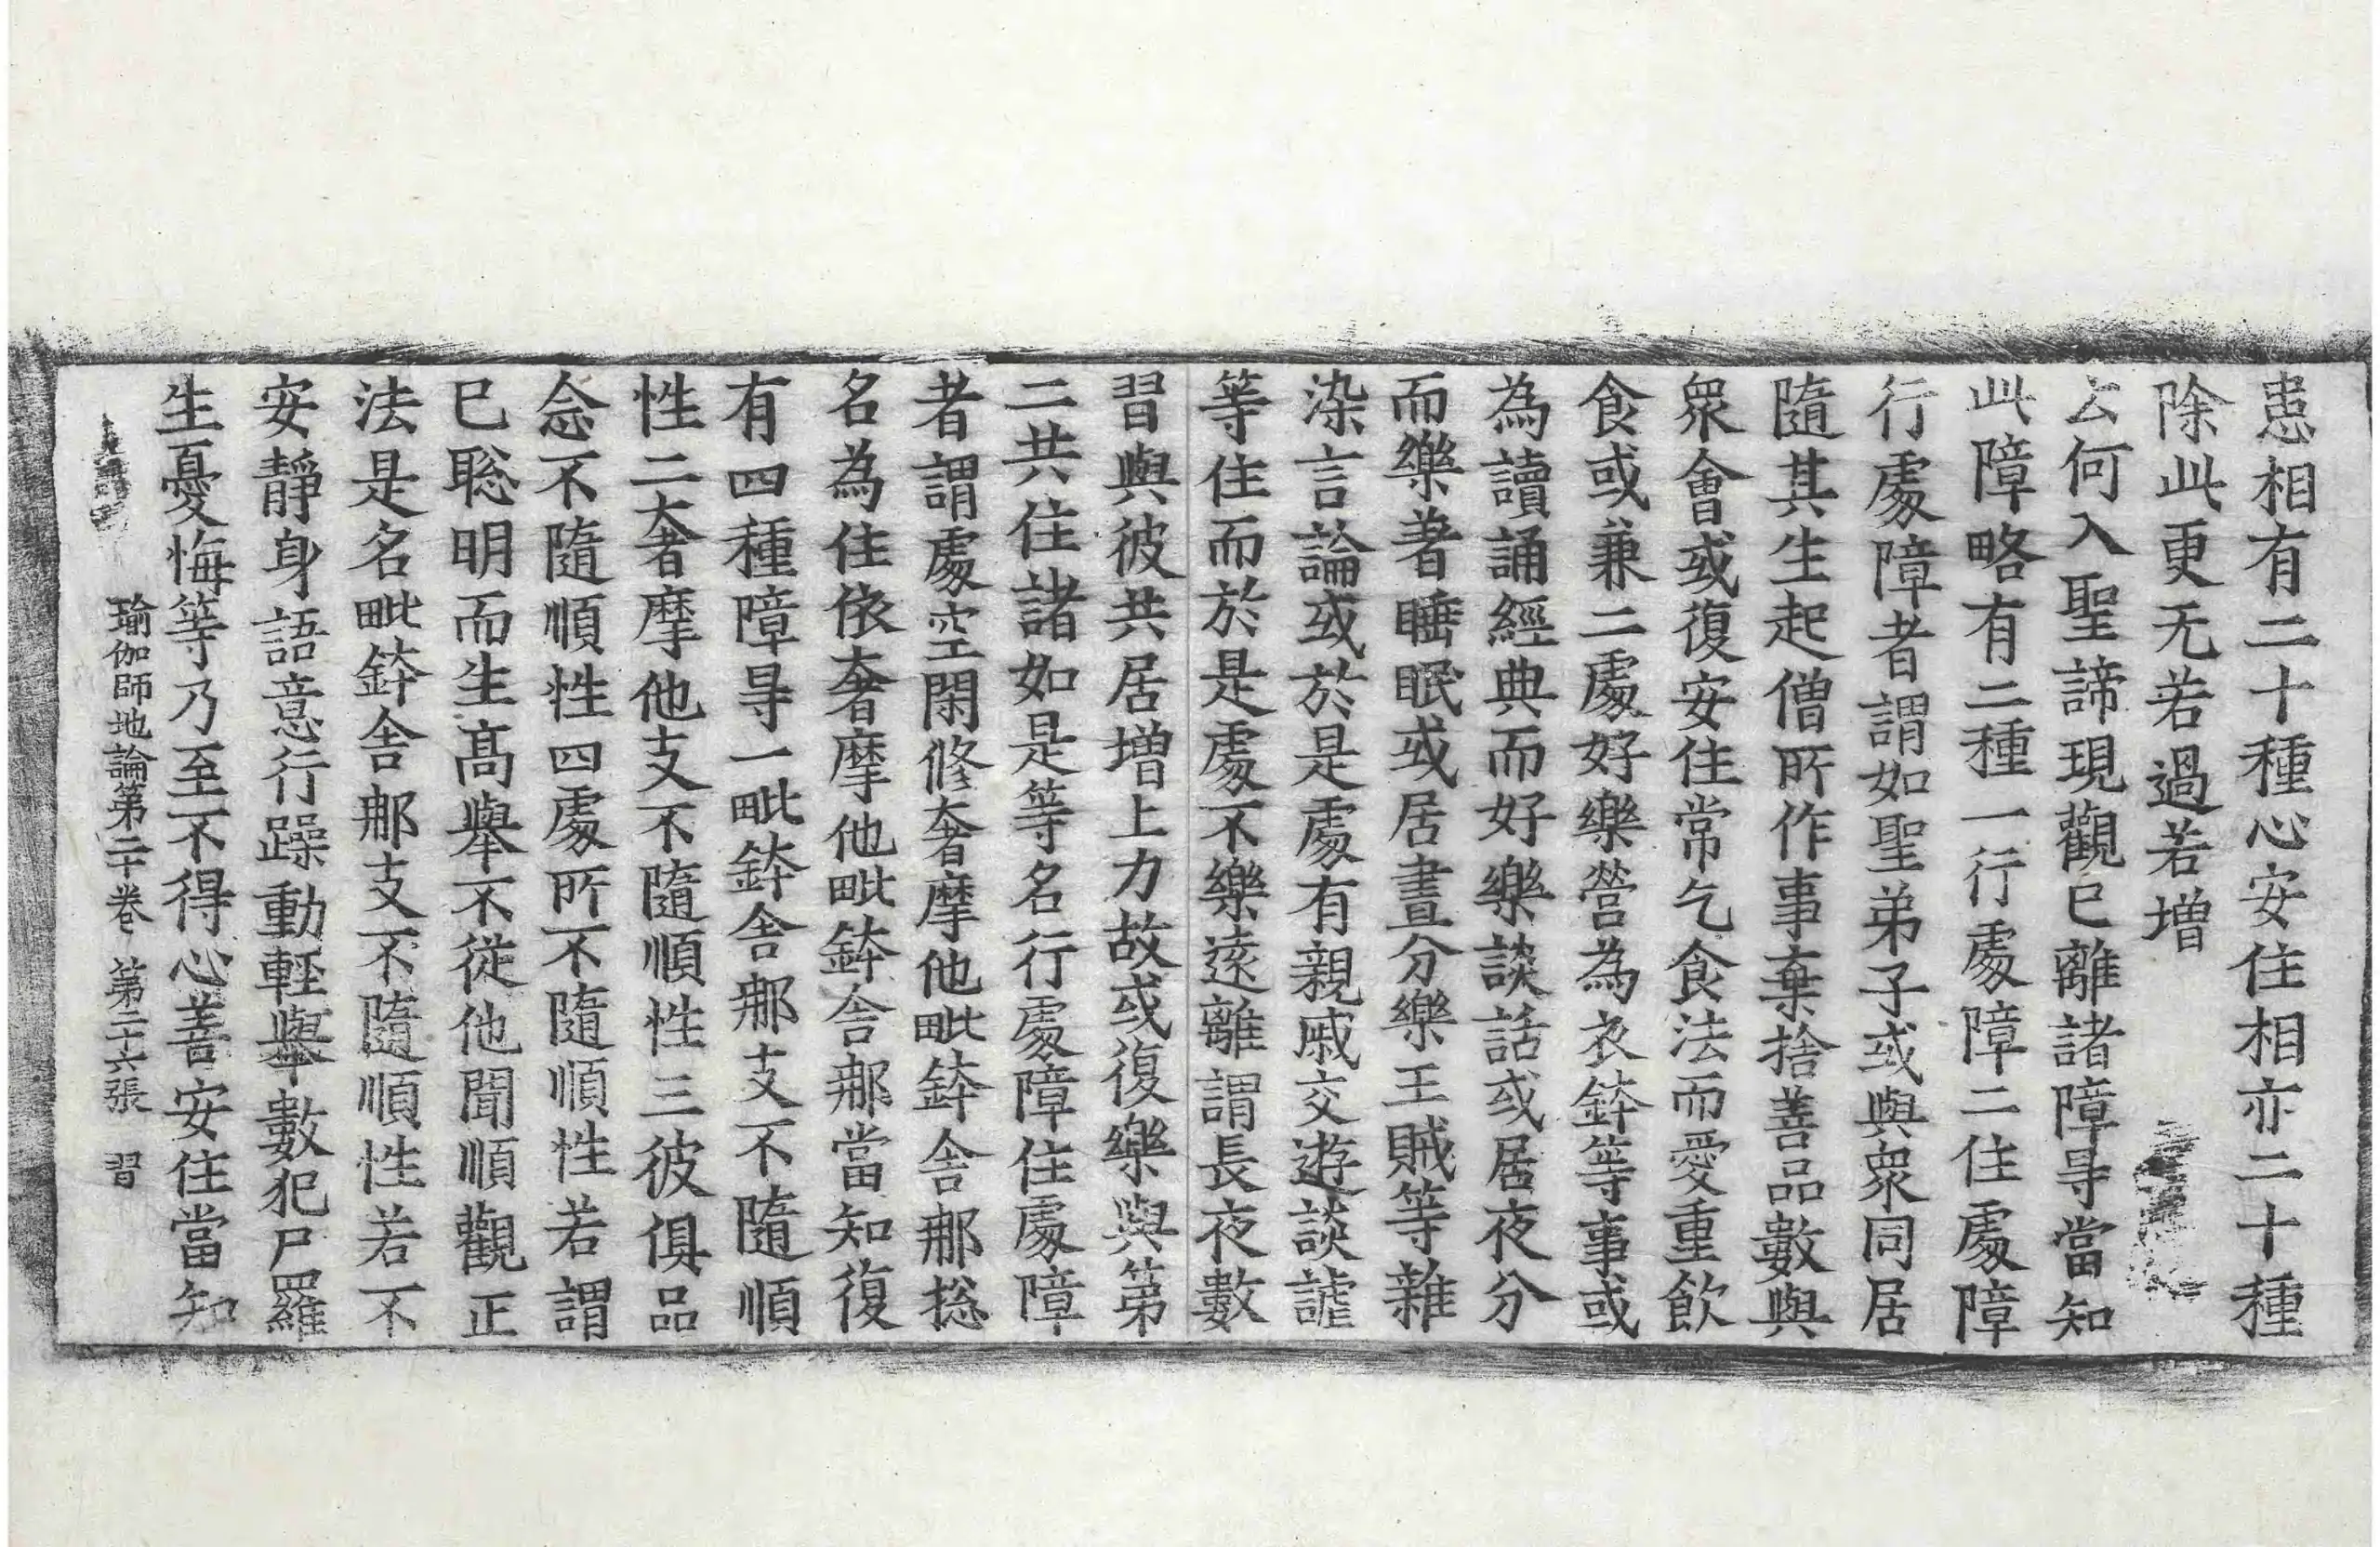 恚相有二十種心安住相亦二十種
除此更无若過若增
云何入聖諦現觀已離諸障㝵當知
此障略有二種一行處障二住處障
行處障者謂如聖弟子或與衆同居
隨其生起僧所作事棄捨善品數與
衆會或復安住常乞食法而愛重飲
食或兼二處好樂營為衣鉢等事或
為讀誦經典而好樂談話或居夜分
而樂著睡眠或居晝分樂王賊等雜
染言論或於是處有親戚交遊談謔
等住而於是處不樂遠離謂長夜數
習與彼共居增上力故或復樂與第
二共住諸如是等名行處障住處障
者謂處空閑修奢摩他毗鉢舍那捴
名為住依奢摩他毗鉢舍那當知復
有四種障㝵一毗鉢舍那支不隨順
性二奢摩他支不隨順性三彼俱品
念不隨順性四處所不隨順性若謂
已聡明而生高舉不從他聞順觀正
法是名毗鉢舍那支不隨順性若不
安靜身語意行躁動輕舉數犯尸羅
生憂悔等乃至不得心善安住當知
瑜伽師地論第二十卷 第二十六張 習